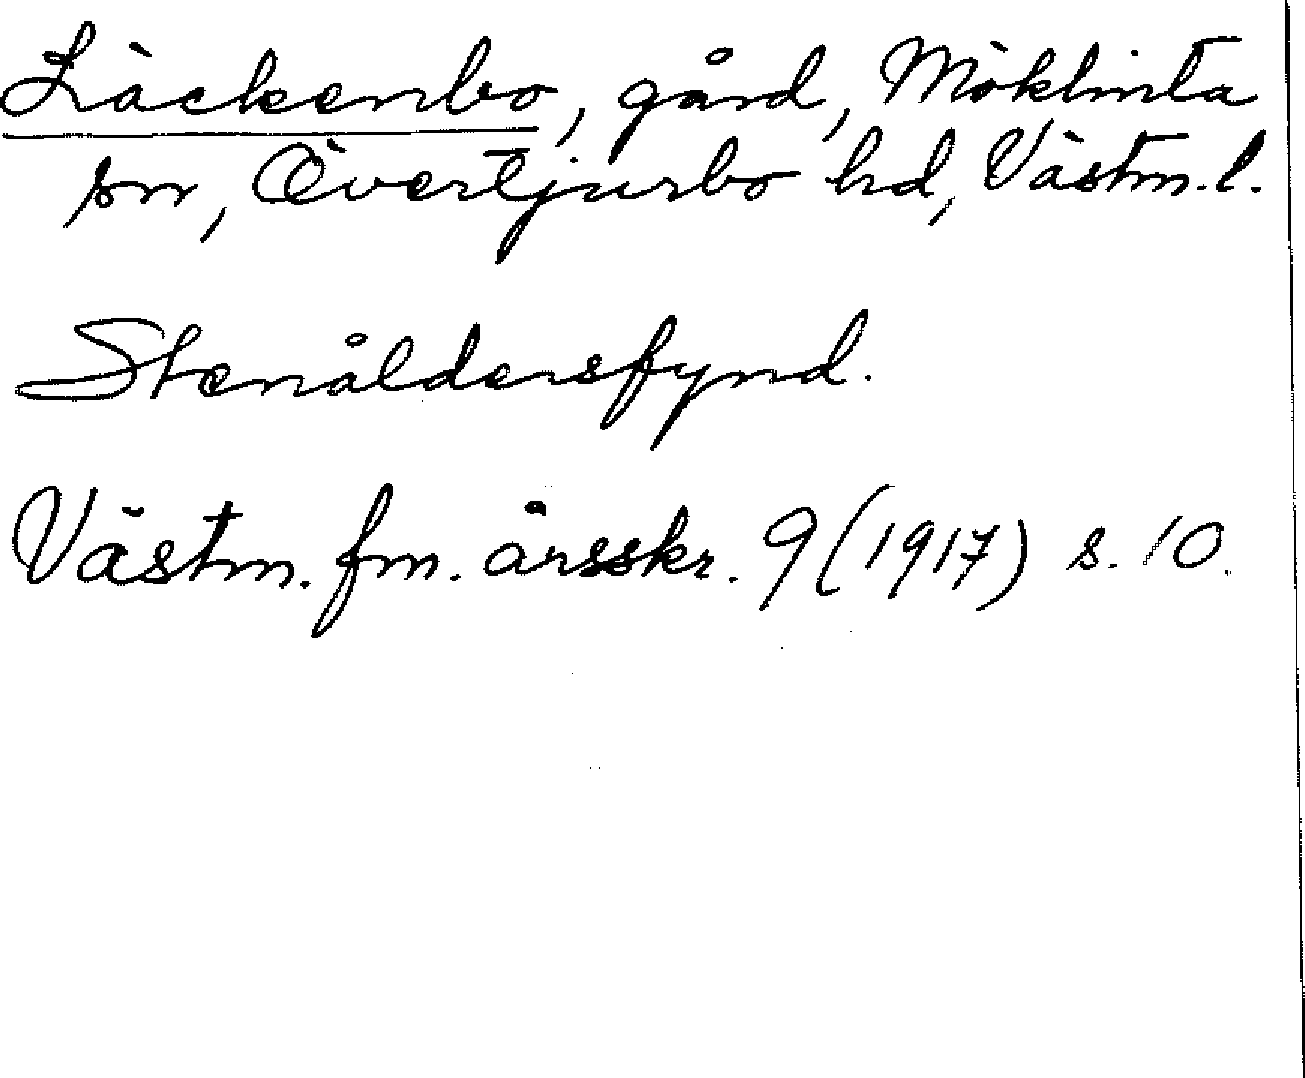 Läckenbo, gård, Möklinta
sn, Övertjurbo hd, Västm. l.
Stenåldersfynd.
Västm. fm. årsskr. 9 (1917) s. 10.